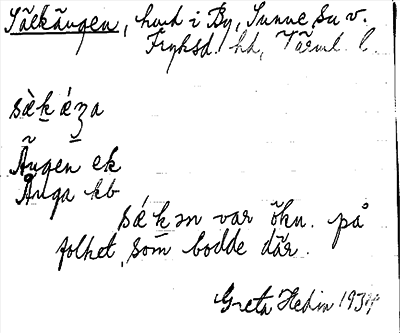 Sälkängen, hmd i By, Sunne Su v.
Fryksd. hd, Värml. l.
sæ̀k ǽŋa
Ängen ek
Änga kb
sǽkən var ökn. på
folket som bodde där.
Greta Hedin 1934